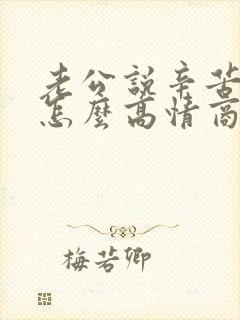 老公說辛苦
怎麼高情商
梅若卿